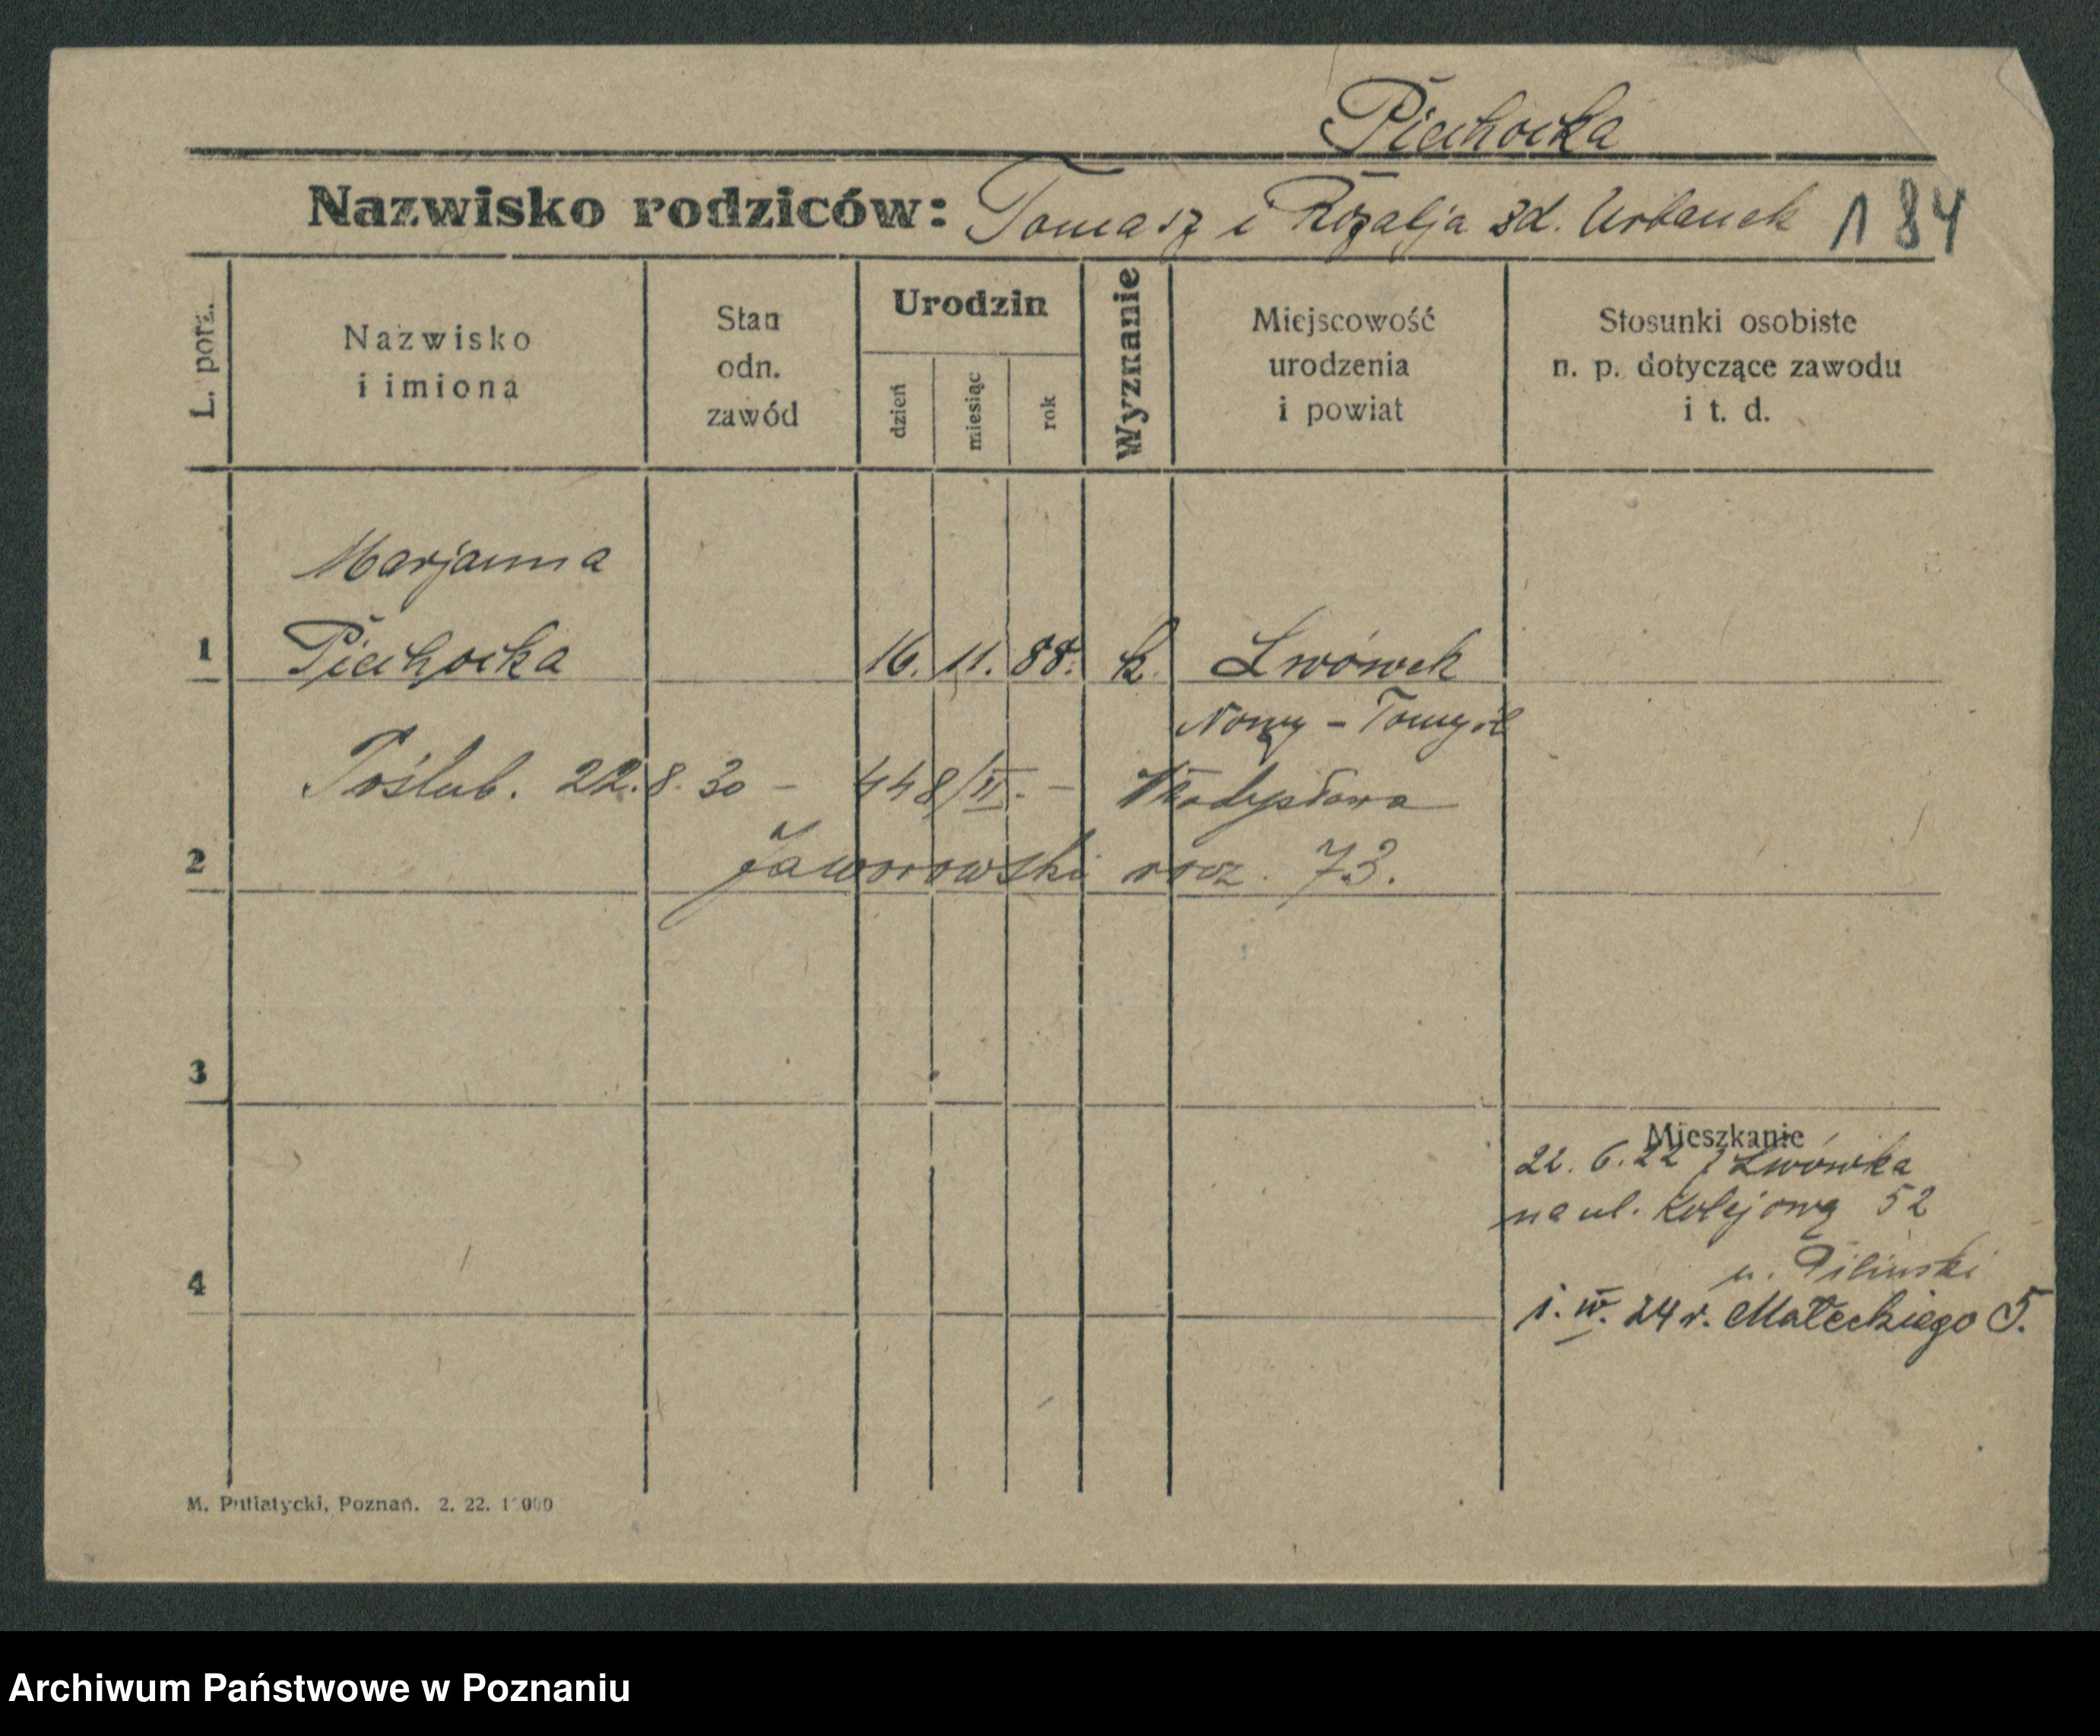 Piechocka
Nazwisko rodziców: Tomasz i Rozalja zd. Urbanek 184
L. porz.
Nazwisko
i imiona
Stan
odn.
zawód
Urodzin
dzień
miesiąc
rok
Wyznanie
Miejscowość
urodzenia
i powiat
Stosunki osobiste
n. p. dotyczące zawodu
i t. d.
Marjanna
1 Piechocka 16. 11. 88. k. Lwówek
Nowy - Tomyśl
Poślub. 22.8.30 - 448/II. - Władysława
2 Jaworowski rocz. 73.
3
Mieszkanie
22. 6. 22 z Lwówka
na ul. Kolejową 52
u. Piliński
4 1. IV. 24 r. Małeckiego 5.
M. Putiatycki, Poznań. 2. 22.
Archiwum Państwowe w Poznaniu